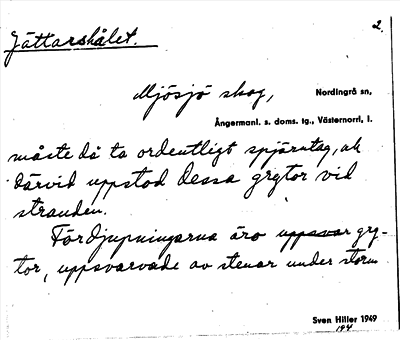 2.
Jättarshålet.
Mjösjö skog, Nordingrå sn,
Ångermanl. s. doms. tg., Västernorrl, l.
måste då ta ordentligt spjärntag, och
därvid uppstod dessa grytor vid
stranden.
Fördjupningarna äro uppsvar gry-
tor, uppsvarvade av stenar under storm
Sven Hiller 1949
194